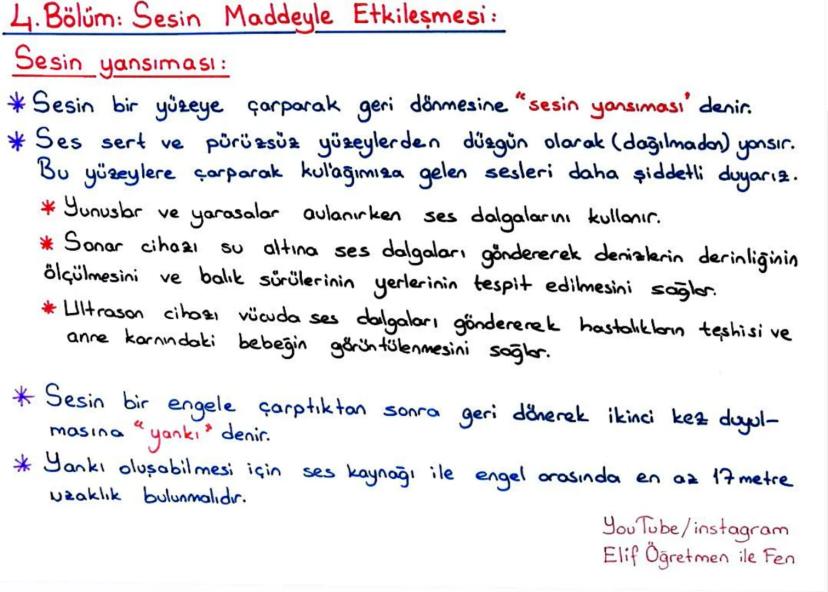 4. Bölüm: Sesin Maddeyle Etkileşmesi:
Sesin yansıması:
* Sesin bir yüzeye çarparak geri dönmesine "sesin yansıması" denir.
* Ses sert ve pürüzsüz yüzeylerden düzgün olarak (dağılmadan) yansır.
Bu yüzeylere çarparak kulağımıza gelen sesleri daha şiddetli duyarız.
* Yunuslar ve yarasalar avlanırken ses dalgalarını kullanır.
* Sonar cihazı su altına ses dalgaları göndererek denizlerin derinliğinin
ölçülmesini ve balık sürülerinin yerlerinin tespit edilmesini sağlar.
* Ultrason cihazı vücuda ses dalgaları göndererek hastalıkların teşhisi ve
anne karnındaki bebeğin görüntülenmesini sağlar.
* Sesin bir engele çarptıktan sonra geri dönerek ikinci kez duyul-
masına "yankı" denir.
* Yankı oluşabilmesi için ses kaynağı ile engel arasında en az 17 metre
uzaklık bulunmalıdır.
YouTube/instagram
Elif Öğretmen ile Fen